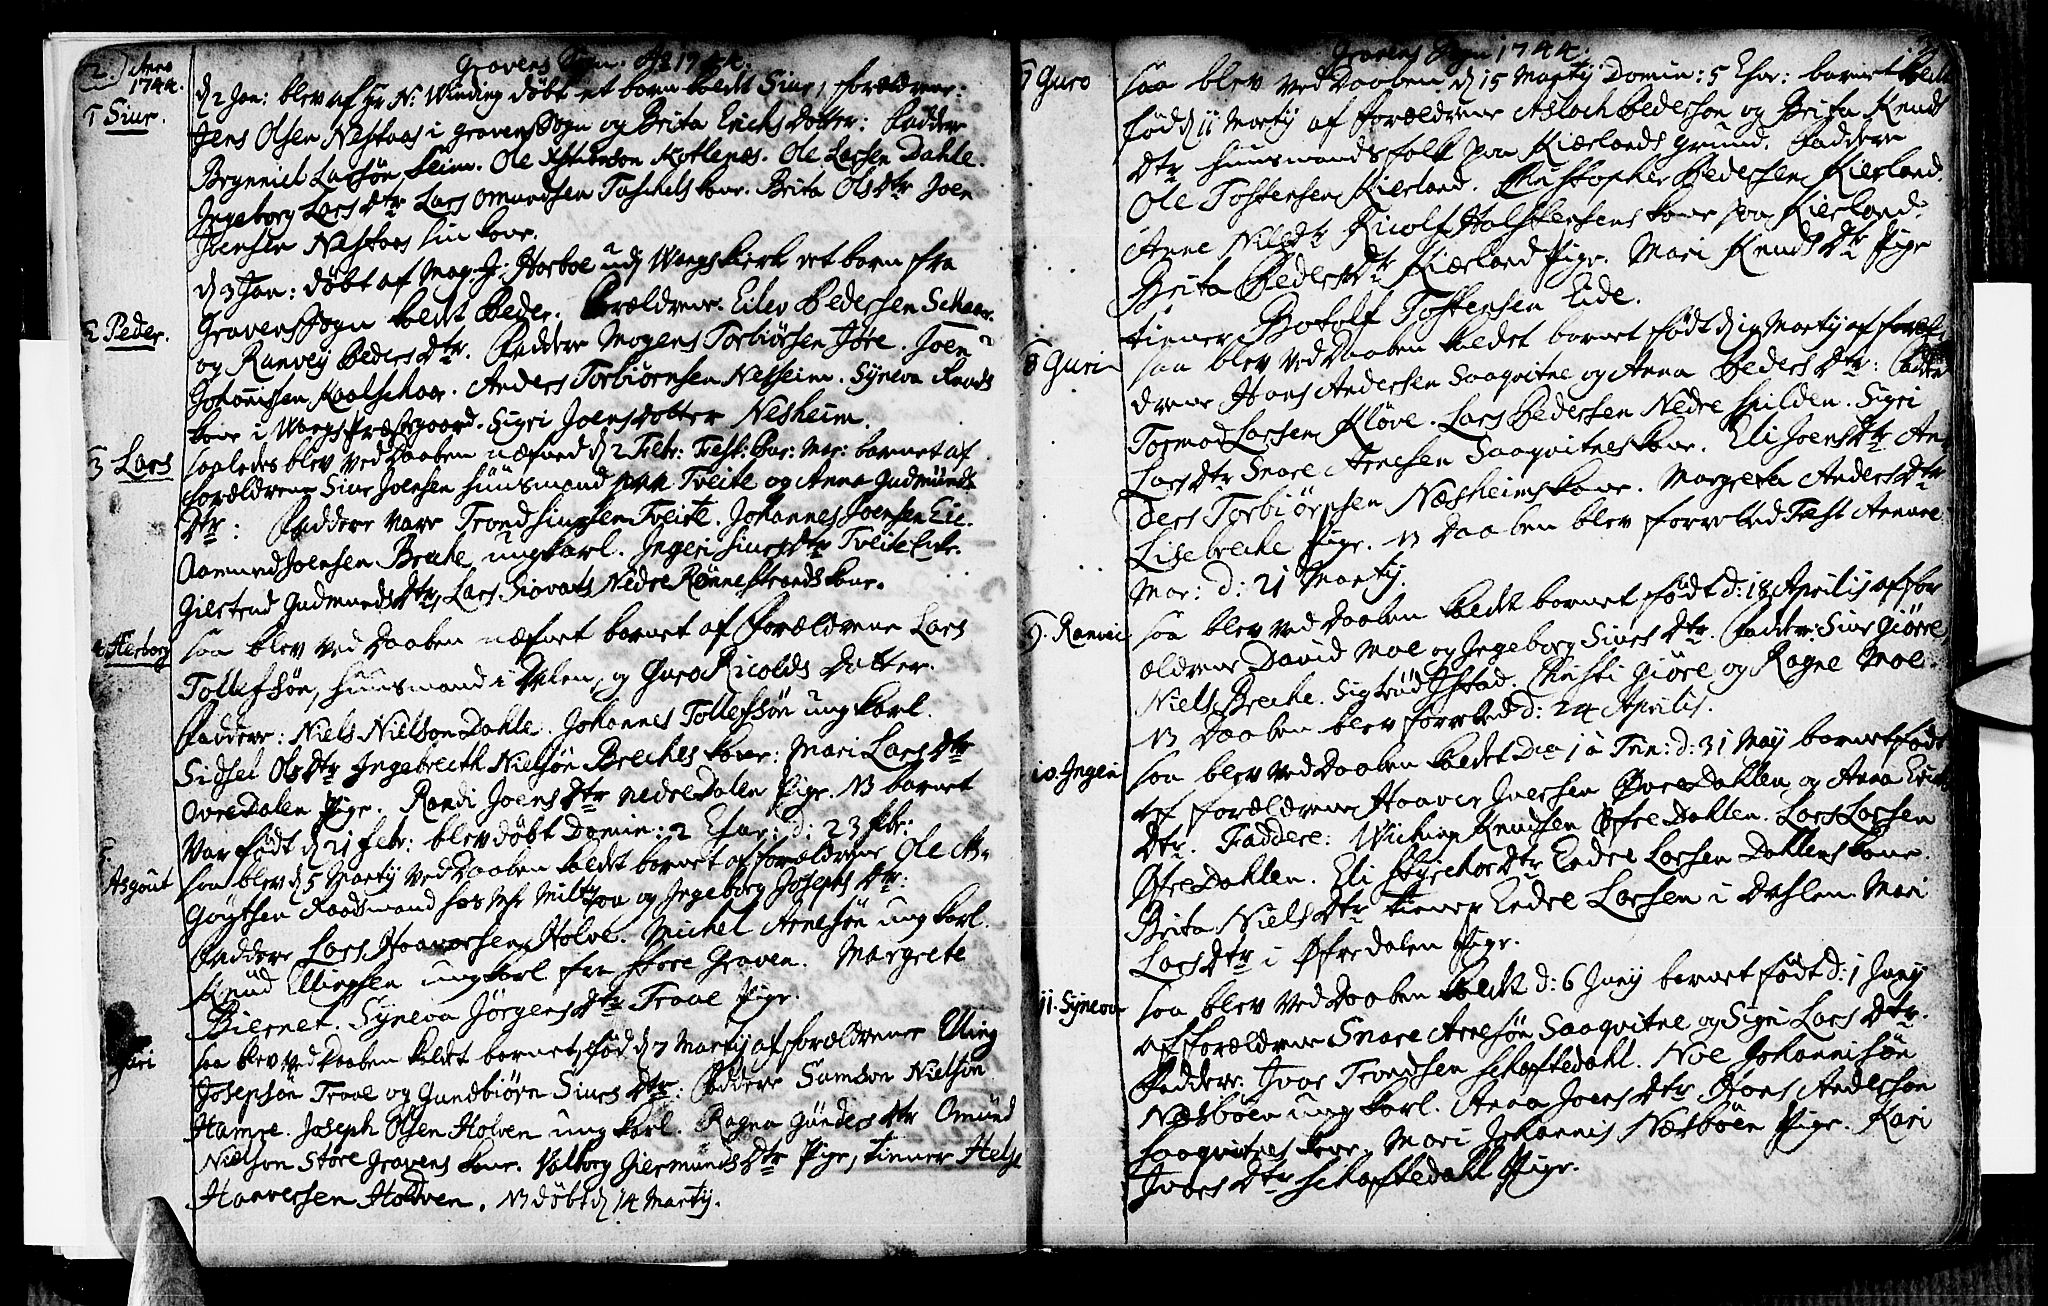 2. Anno 1744.
Gravens Sogn. Ao 1744.
1 Siur.
d 2 Jan: blev af Hr N: Winding døbt et barn kaldt Siur, forældrene:
Jens Olsen Nestaas i Gravens Sogn og Brita Erichs Dotter: Faddere
Brynniel Larsøn Seim. Ole Kotlenes. Ole Larsen Dahle.
Ingeborg Lars Dtr Lars Omundsen kone. Brita Ols Dtr Joen
Jensen Nestaas sin kone.
2 Peder.
d 3 Jan: døbt af Mag: J: Harboe udj Wangs kierk det barn fra
Gravens Sogn kaldt Peder. Forældrene: Eilev Pedersen Schaar
og Ranvey Peders Dtr. Faddere Mogens Torbiørsen Jøre. Joen
Johannissen Kaalschaar. Anders Torbiørnsen Nesheim. Syneva
kone i Wangs Præstegaard. Sigri Joens dotter Nesheim.
3 Lars
saaledes blev ved Daaben næfned d 2 Febr: Fest: Pur: Mar: barnet af
forældrene Siur Joensen huusmand paa Tveite og Anna Gudmunds
Dtr: Faddere vare Trond Siursen Tveite. Johannes Joensen Eie.
Aamund Joensen Breche ungkarl. Ingeri Siurs Dtr Tveite
Giertrud Gudmunds Dtr, Lars Siovats Nedre Rønnestrands kone.
4 Herborg
saa blev ved Daaben næfnet barnet af Forældrene Lars
Tollefsøn, huusmand i Dalen, og Guro Ricolds Datter.
Faddere: Niels Nielson Dahle. Johannes Tollefsøn ungkarl.
Sidsel Ols Dtr Ingebrecth Nielsøn Breches kone: Mari Lars Dtr
Øvre Dalen Pige. Randi Joens Dtr Nedre Dalen Pige. NB barnet
var født d 21 febr: blev døbt Domin: 2 Qvar: d: 23 febr:
5. Asgout
saa blev d 5 Martij ved Daaben kaldet barnet af forældrene Ole As-
goutsen Raadsmand hos og Ingeborg Josephs Dtr:
Faddere Lars Haavarsen Holve. Michel Arnesøn ungkarl.
Knud Ellingsen ungkarl fra Store Graven. Margrete
Piernet. Syneva Jørgens Dtr Traae Pige.
saa blev ved Daaben kaldet barnet, fød d 7 Martij af forældrene Elling
Josephsøn Traae og Gundbiørn Siurs Dtr: Faddere Samson Nielsøn
Hamre. Joseph Olsen Holven ungkarl. Ragna Gunders Dtr Omund
Nielson Store Gravens kone. Valborg Giermunds Dtr Pige, tienner Helge
Haaversen Holdven. NB døbt d 14 Martij.
Gravens Sogn 1744.
7 Guro
saa blev ved Daaben d 15 Martij Domin: 5 Qvar: barnet kaldt
fød d 11 Martij af Forældrene Aslach Pederson og Brita Knuds
Dtr huusmandsfolk paa Kierlands grund. Faddere
Ole Tostensen Kierland. Christopher Pedersen Kierland.
Anne Nils Dtr Ricolf Halstensens kone paa Kierland.
Brita Peders Dtr Kierland Pige. Mari Knuds Dtr Pige
tiener Botolf Tostensen Eide.
8 Guri
saa blev ved Daaben kaldet barnet født d 19 Martij af foræl-
drene Hans Andersen Saaqvitne og Anna Peders Dtr: Faddere
Tormod Larsen Kløve. Lars Pedersen Nedre Spilden. Sigri
Lars Dtr Snare Arnesen Saaqvitnes kone. Eli Joens Dtr An-
ders Torbiørnsen Næsheims kone. Margreta Anders Dtr
Lisebreche Pige. NB Daaben blev forretted Fest Annunc
Mar: d: 21 Martij.
9. Ranvei
saa blev ved Daaben kaldt barnet født d: 18 Aprilij af for
ældrene David Moe og Ingeborg Siurs Dtr. Faddere: Siur Giøre
Niels Breche. Sigtrud Istad. Christi Giøre og Ragne Moe.
NB Daaben blev forretted d: 24 Aprilis.
10. Ingeri
saa blev ved Daaben kaldet Dca 1 a Trin: d: 31 Maij barnet født
af forældrene Haaver Iversen Øvre Dahlen og Anna Erichs
Dtr. Faddere: Wiching Knudsen Øfre Dahlen. Lars Larsen
Øfre Dahlen. Eli Styrchor Dtr Endre Larsen Dahlens kone.
Brita Niels Dtr tiener Endre Larsen i Dahlen. Mari
Lars Dtr i Øfre dalen Pige.
11. Syneva
saa blev ved Daaben kaldt d: 6 Junij barnet født d: 1 Junij
af forældrene Snare Arnesøn Saaqvitne og Sigri Lars Dtr.
Faddere: Ivar Trondsen Schaftedahl. Noe Johannisøn
Næsbøen ungkarl. Anna Joens Dtr Hans Anderson
Saaqvitnes kone. Mari Johannis Næsbøen Pige. Kari
Ivars Dtr Schaftedahl Pige.